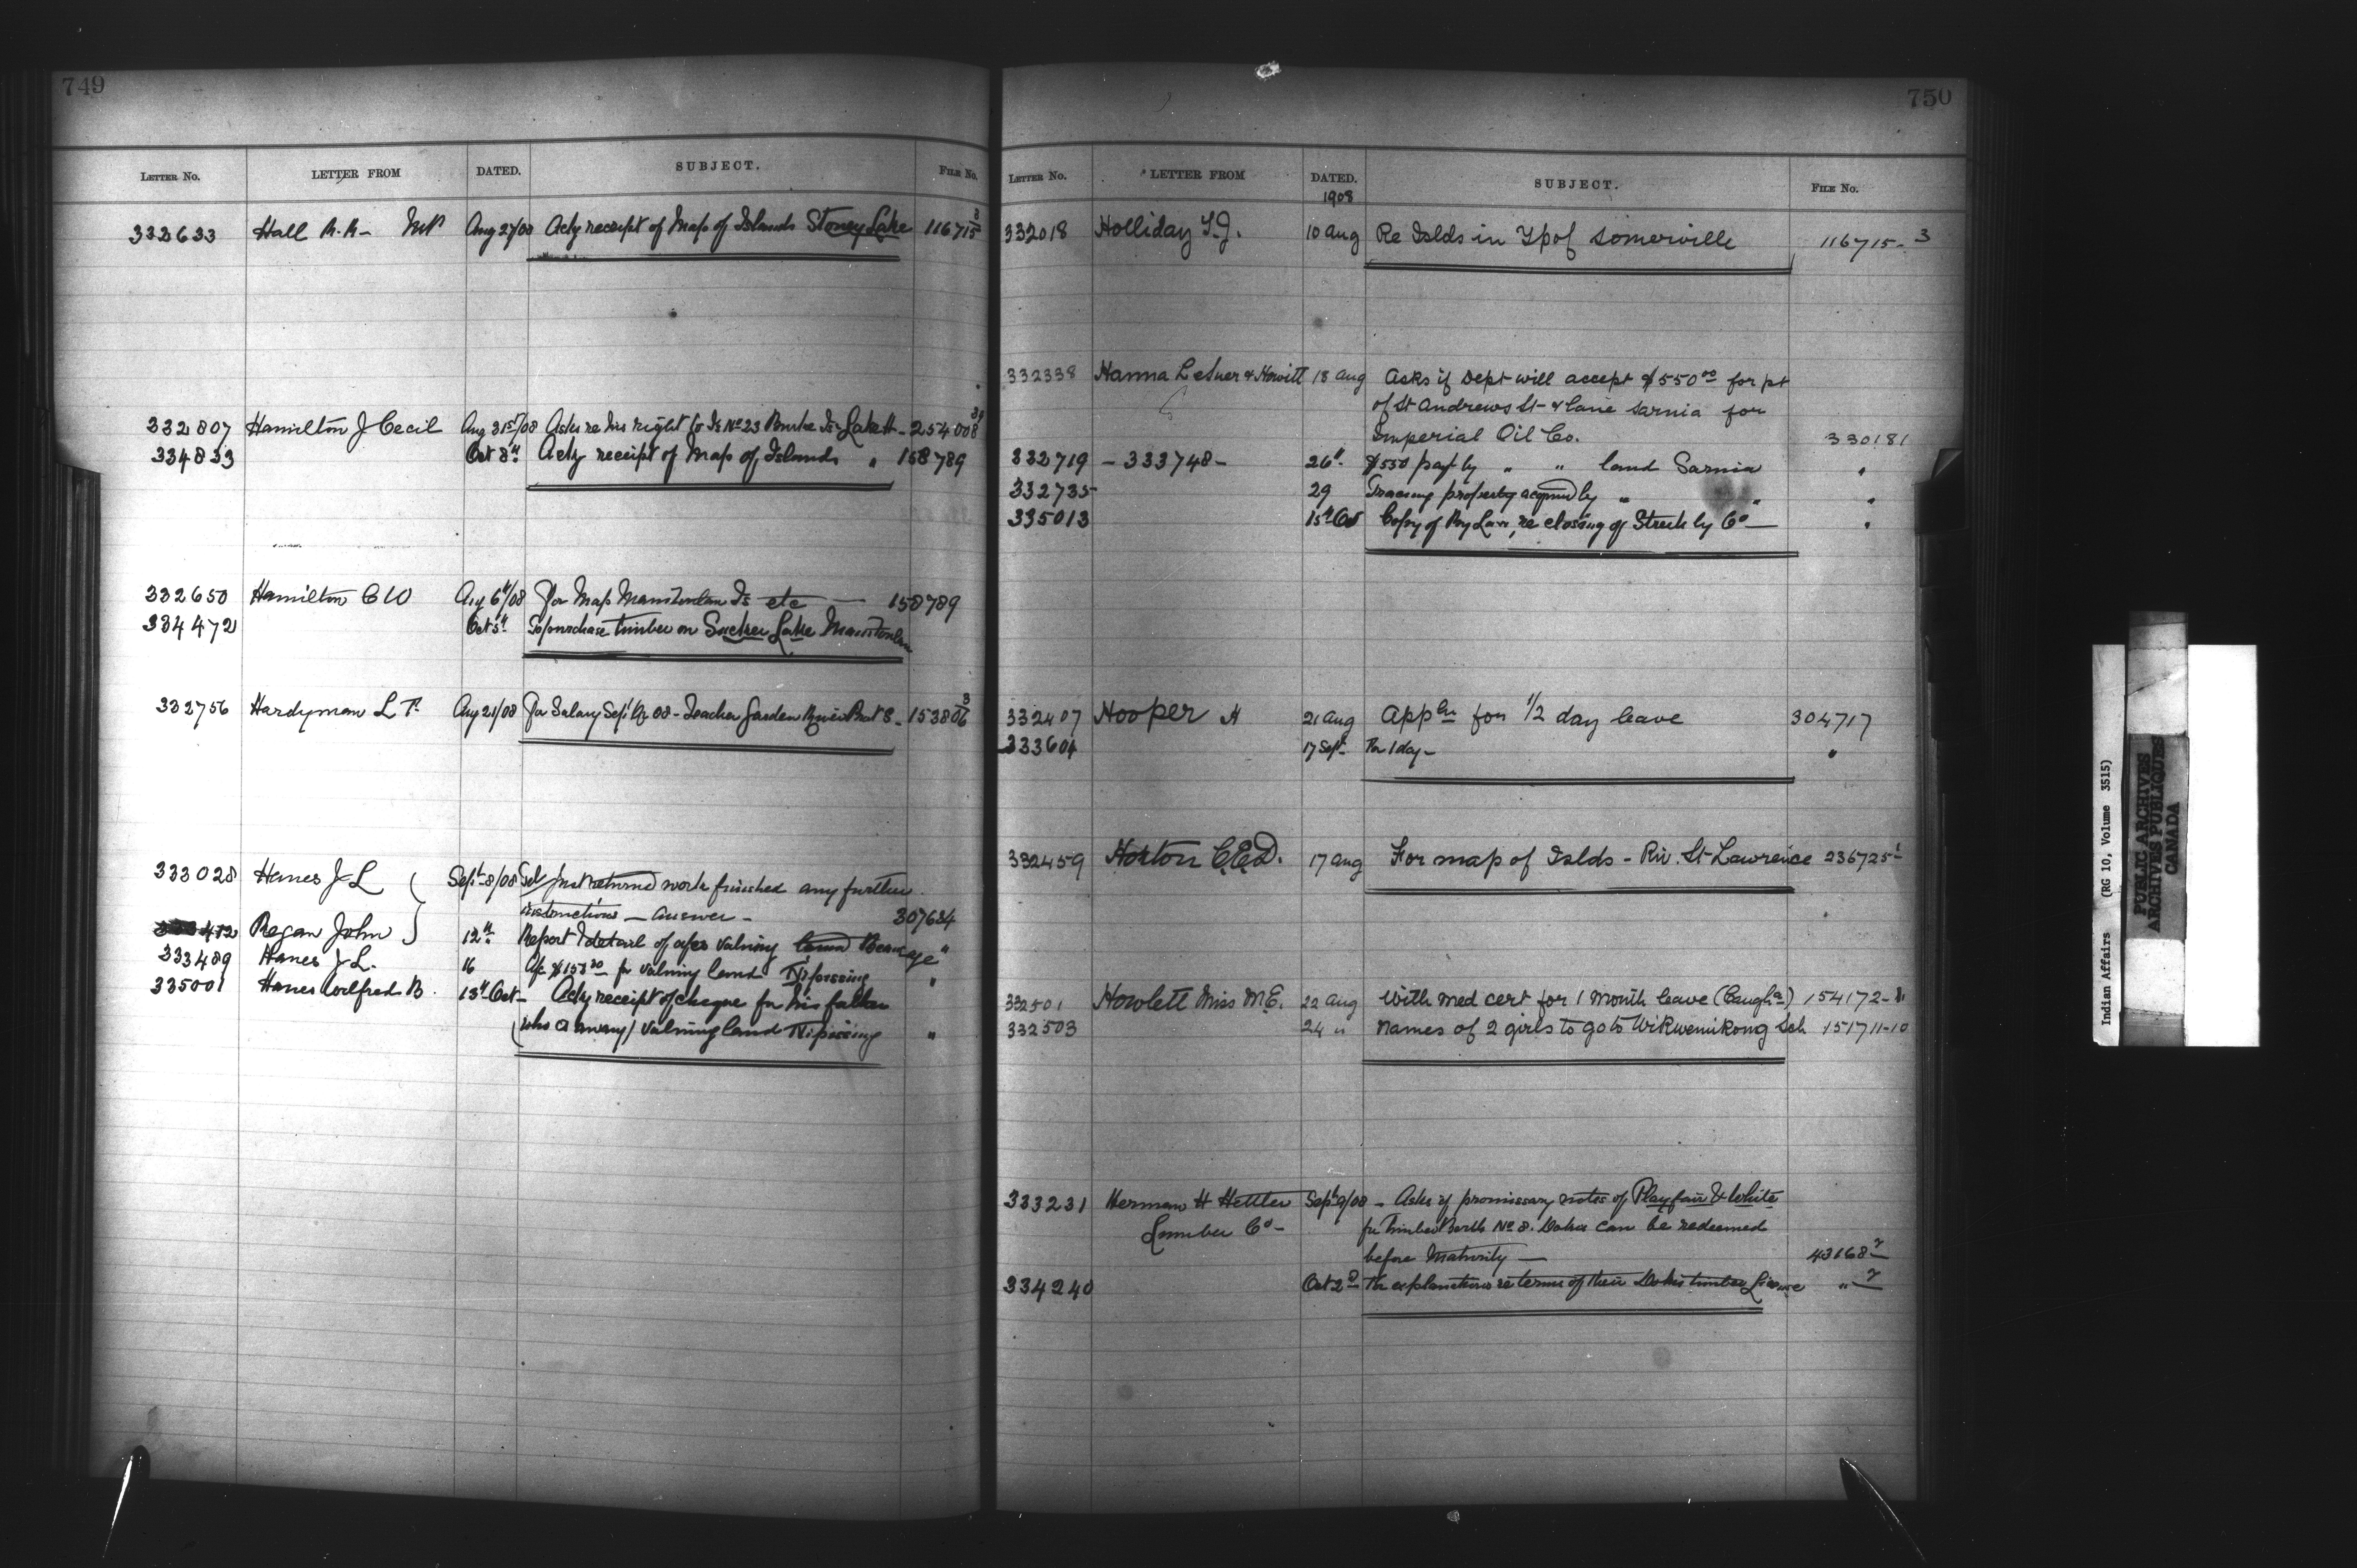 749
LETTER No. LETTER FROM DATED. SUBJECT. FILE No.
332633 Hall R.R- MP Aug 27/08 Ackg receipt of Map of Islands Stoney Lake 116715 3
332807 Hamilton J Cecil Aug 31st/08 Asks re his right to Is No 23 Burke Is Lake H - 254008 3
334833 Oct 8th Ackg receipt of Map of Islands " 158789
332650 Hamilton C W Aug 6th/08 For Map Manitoulin Is etc — 158789
334472 Oct 5th To purchase timber on Sucker Lake Manitoulin
332756 Hardyman L T. Aug 21/08 For Salary Sept Qr 08 - Teacher Garden River Prot S - 153806 3
333028 Hanes J L Sept 8/08 Just returned work finished any further
instructions — answer - 307634
412 Regan John 12th Report & detail of a/cs valuing land Beaucage "
333489 Hanes J L. 16 A/c $153 for valuing land Nipissing "
335001 Hanes Wilfred B. 13th Oct - Ackg receipt of cheque for his father
(who is away) valuing land Nipissing "
750
LETTER No. LETTER FROM DATED. SUBJECT. FILE No.
1908
332018 Holliday T.J. 10 Aug Re Islds in Tp of Somerville 116715-3
332338 Hanna LeSuer & Howitt 18 Aug Asks if Dept will accept $550 00 for pt
of St Andrews St- & lane Sarnia for
Imperial Oil Co. 330181
332719 - 333748 - 26th $550 pay't by " " land Sarnia "
332735 29 Tracing property acquired by " " "
335013 15th Oct Copy of By Law, re closing of Street by Co — "
332407 Hooper H 21 Aug Appln for 1/2 day leave 304717
333604 17 Sept For 1 day - "
332459 Horton C.E.D. 17 Aug For map of Islds - Riv. St Lawrence 236725-1
332501 Howlett Miss M.E. 22 Aug With med cert for 1 month leave (Caugha) 154172-
332503 24 " Names of 2 girls to go to Wikwemikong Sch 151711-10
333231 Herman H Hettler Sept 9/08 - Asks if promissary notes of Playfair & White
Lumber Co - for Timber Berth No 8. Dokis can be redeemed
before Maturity — 43168-7
334240 Oct 2nd For explanations re terms of their Dokis timber License " 7
Indian Affairs (RG 10, Volume 3515)
PUBLIC ARCHIVES
ARCHIVES PUBLIQUES
CANADA